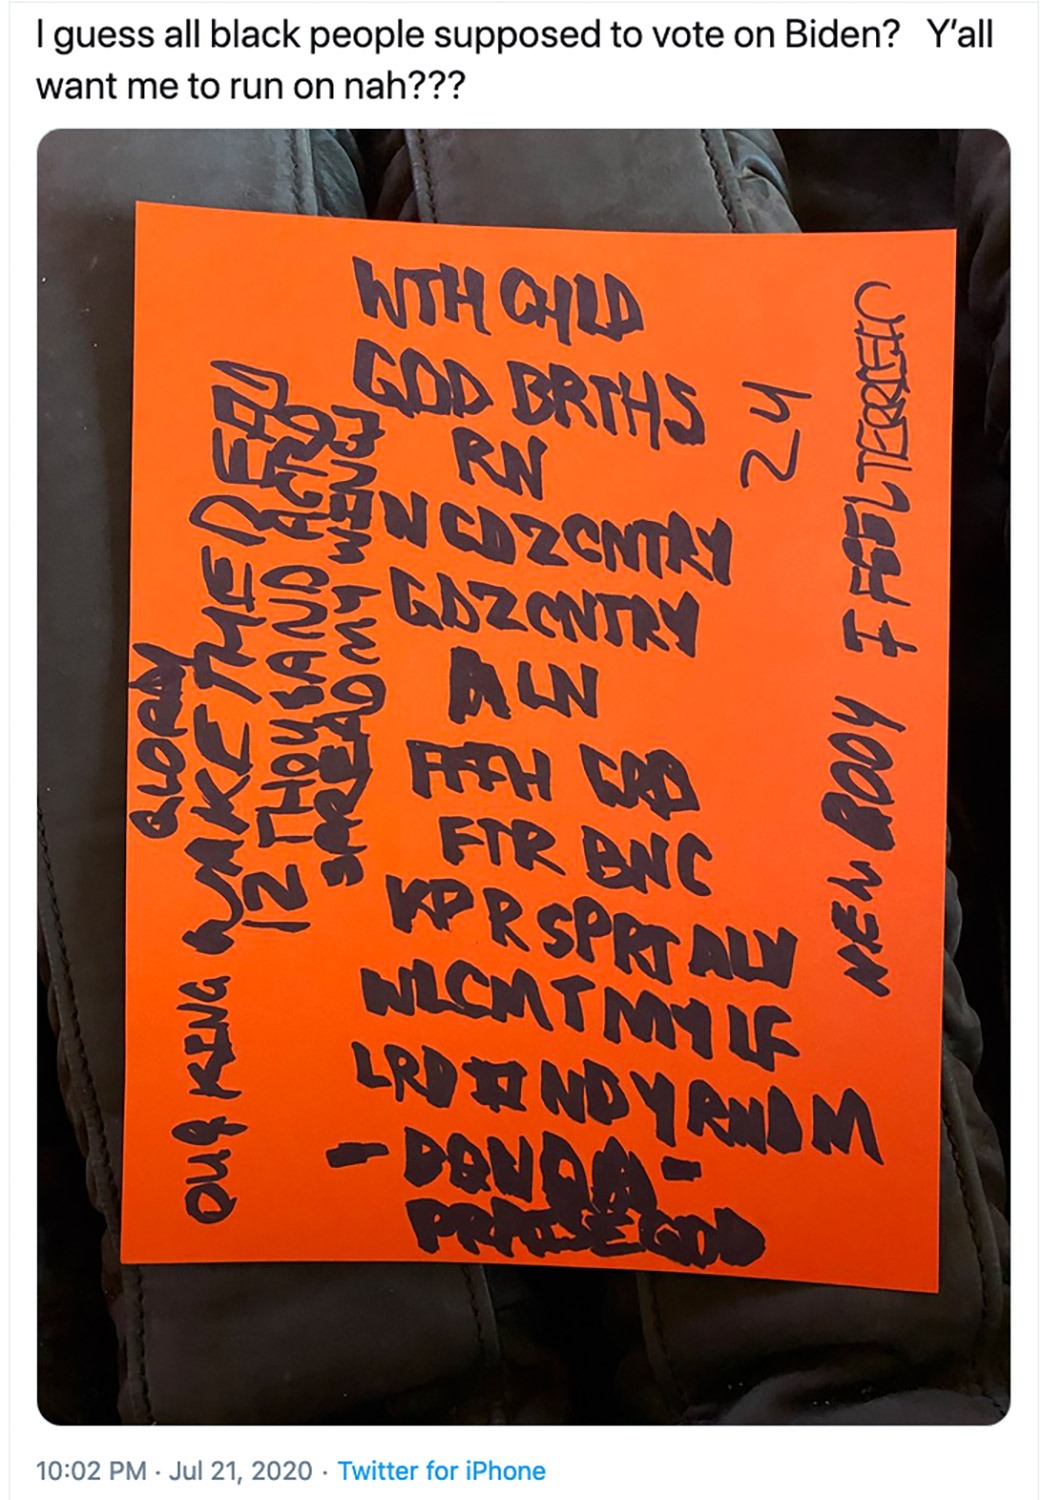 I guess all black people supposed to vote on Biden?   Y'all
want me to run on nah???
WTH CHLD
GOD BRTHS
RN
N GDZCNTRY
GDZCNTRY
ALN
FTR BNC
KPR SPRT ALV
WLCM T MY LF
LRD NDYRNDM
- DONDA -
PRAISE GOD
24
NEW BODY I FEEL TERRIFIC
GLORY
OUR KING WAKE THE DEAD
12 THOUSAND ACRE
SPREAD MY WINGS
10:02 PM · Jul 21, 2020 · Twitter for iPhone